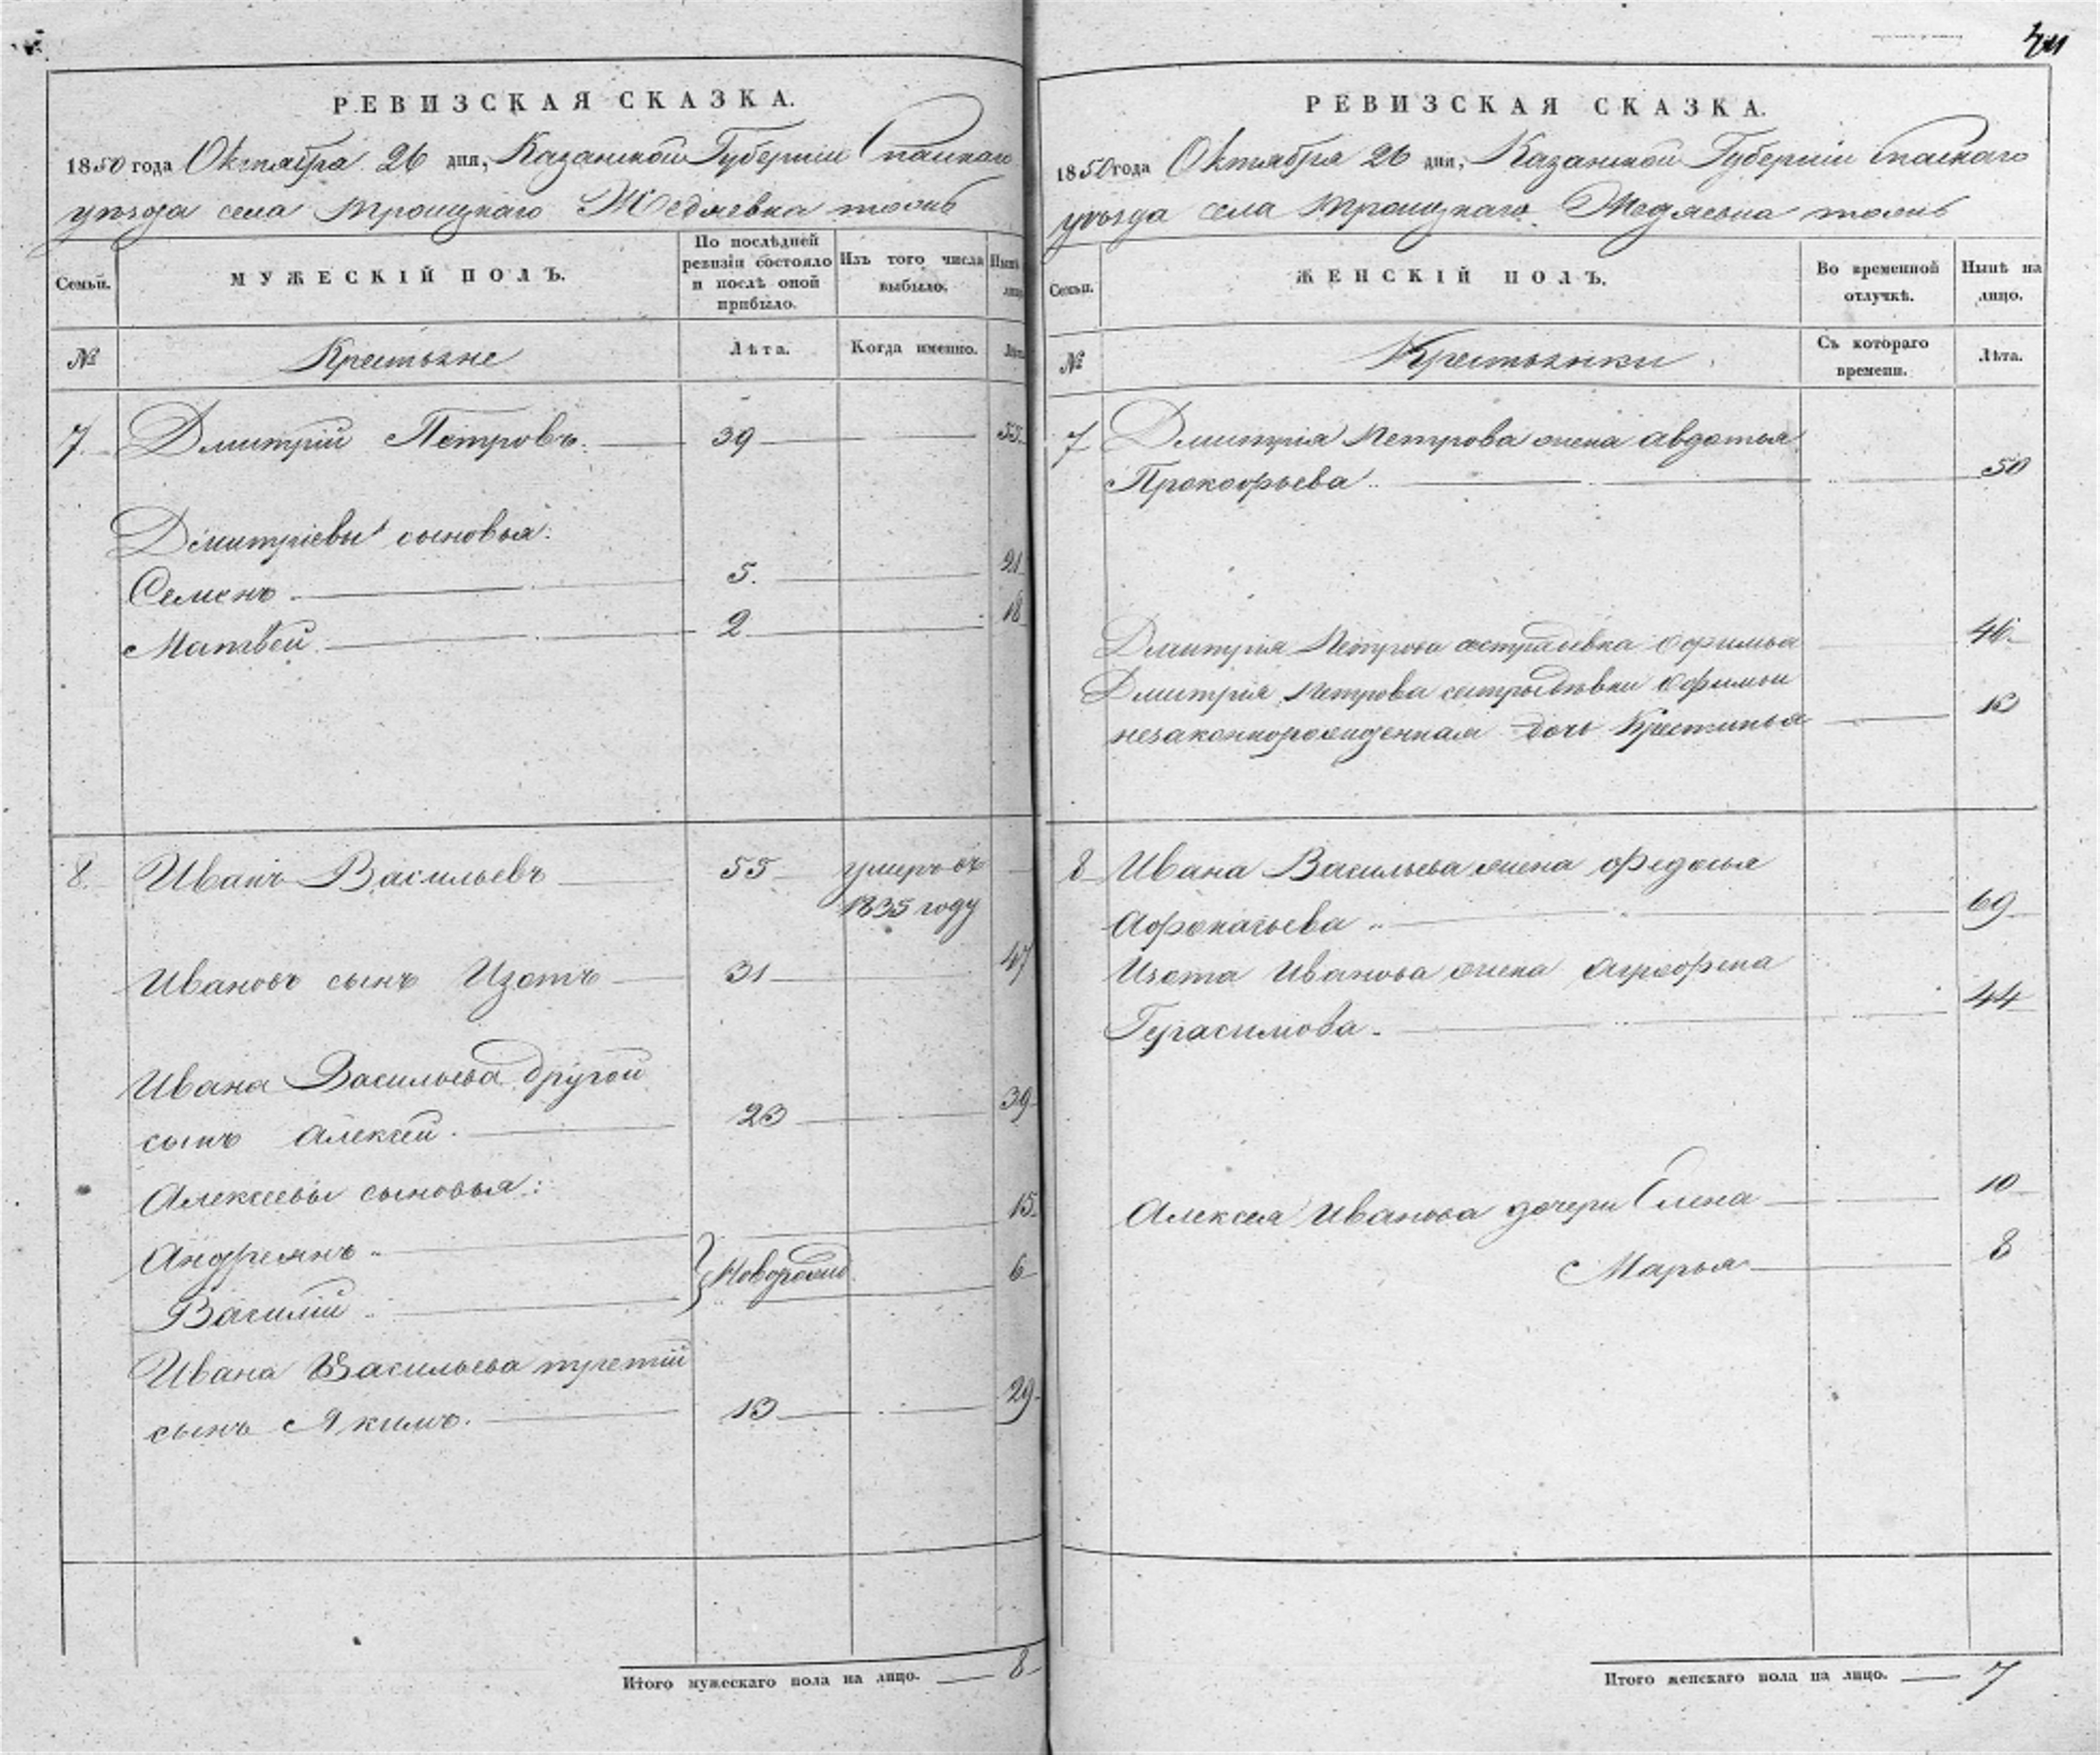 РЕВИЗСКАЯ СКАЗКА.
1850 года Октября 26 дня, Казанской Губернiи Спаскаго
уѣзда села Троицкаго Жедяевка тожъ
Семьи.
МУЖЕСКIЙ ПОЛЪ.
По послѣдней ревизiи состояло и послѣ оной прибыло.
Изъ того числа выбыло.
Нынѣ
лицо
№
Крестьяне
Лѣта.
Когда именно.
Лѣта
7. Дмитрiй Петровъ. 39 55.
Дмитрiевы сыновья:
Семенъ 5. 21
Матвей 2 18
8. Иванъ Васильевъ 55 умеръ въ
1835 году
Ивановъ сынъ Изотъ 31 47
Ивана Васильева другой
сынъ Алексей. 23 39
Алексеевы сыновья:
Андреянъ 15.
Новорожд
Василiй 6
Ивана Васильева третiй
сынъ Якимъ. 13 29
Итого мужескаго пола на лицо. 8
РЕВИЗСКАЯ СКАЗКА.
1850 года Октября 26 дня, Казанской Губернiи Спаскаго
уѣзда села Троицкаго Жедяевка тожъ
Семьи.
ЖЕНСКIЙ ПОЛЪ.
Во временной отлучкѣ.
Нынѣ на лицо.
№
Крестьянки
Съ котораго времени.
Лѣта.
7 Дмитрiя Петрова жена Авдотья
Прокофьева 50
Дмитрiя Петрова Офимья 46
Дмитрiя Петрова Офимьи
незаконнорожденная дочь Крестинья 13
8 Ивана Васильева жена Федосья
69
Изота Иванова жена Агрофена
Герасимова 44
Алексея Иванова дочери Елена 10
Марья 8
Итого женскаго пола на лицо. 7